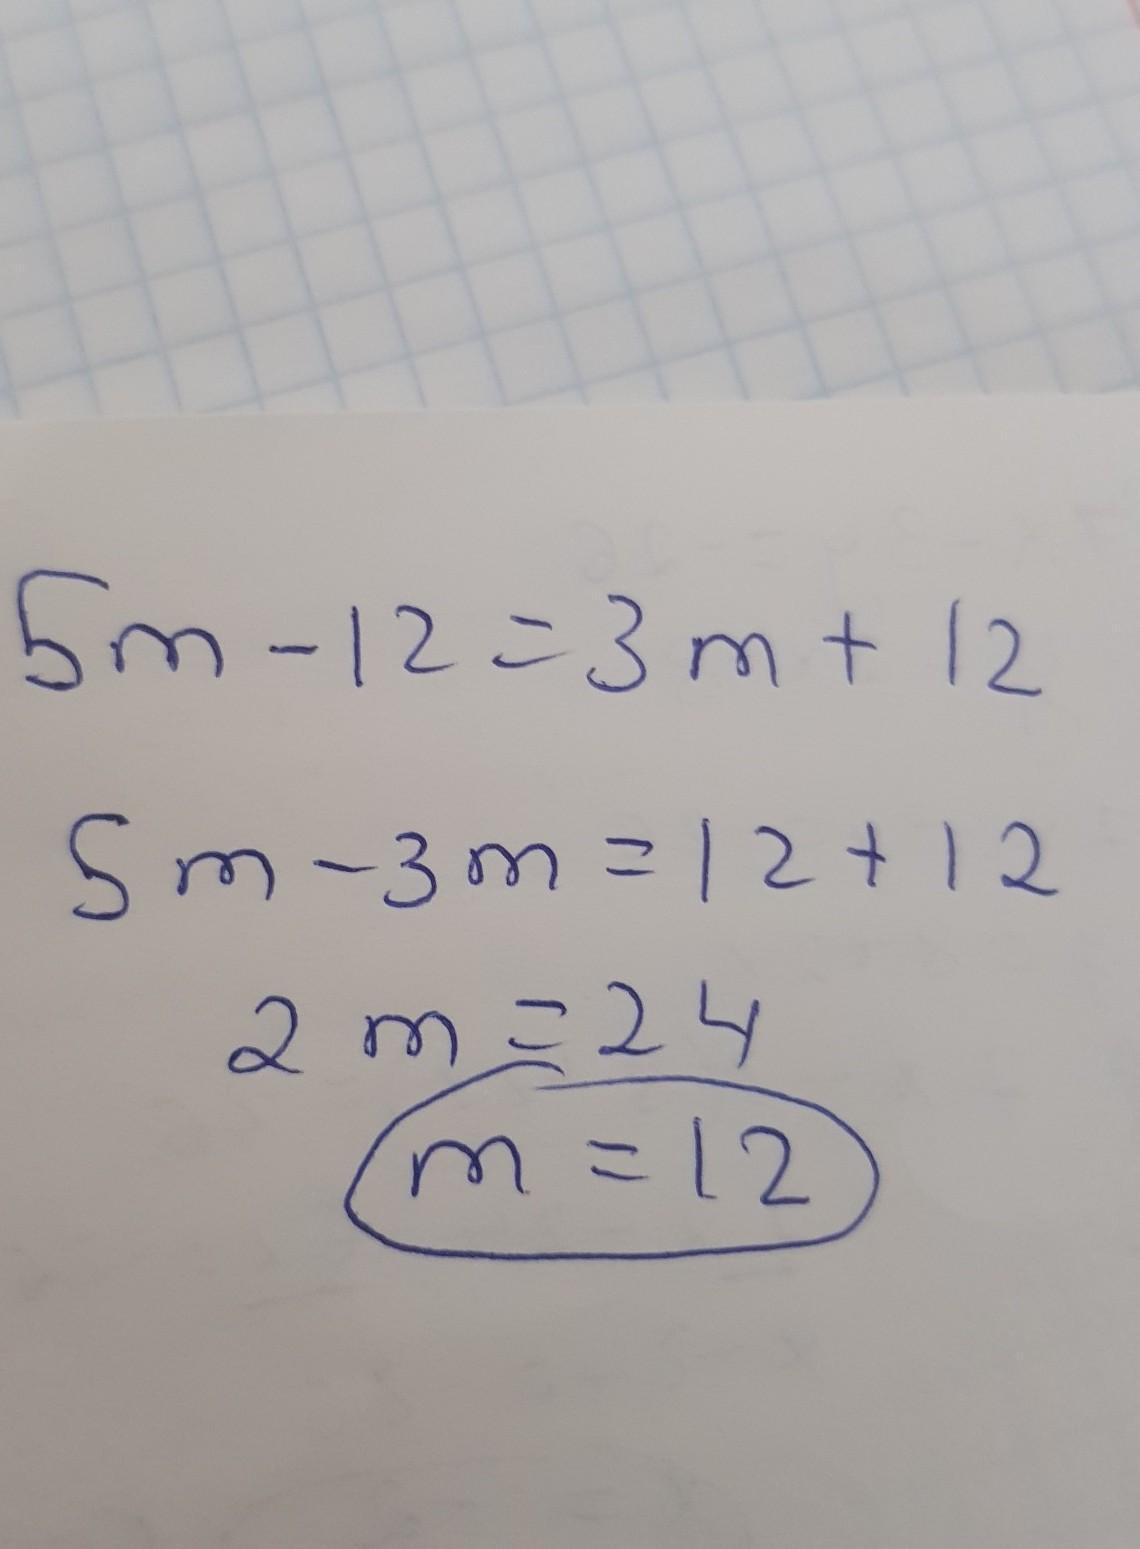 5m-12=3m+12
5m-3m=12+12
2m=24
m=12